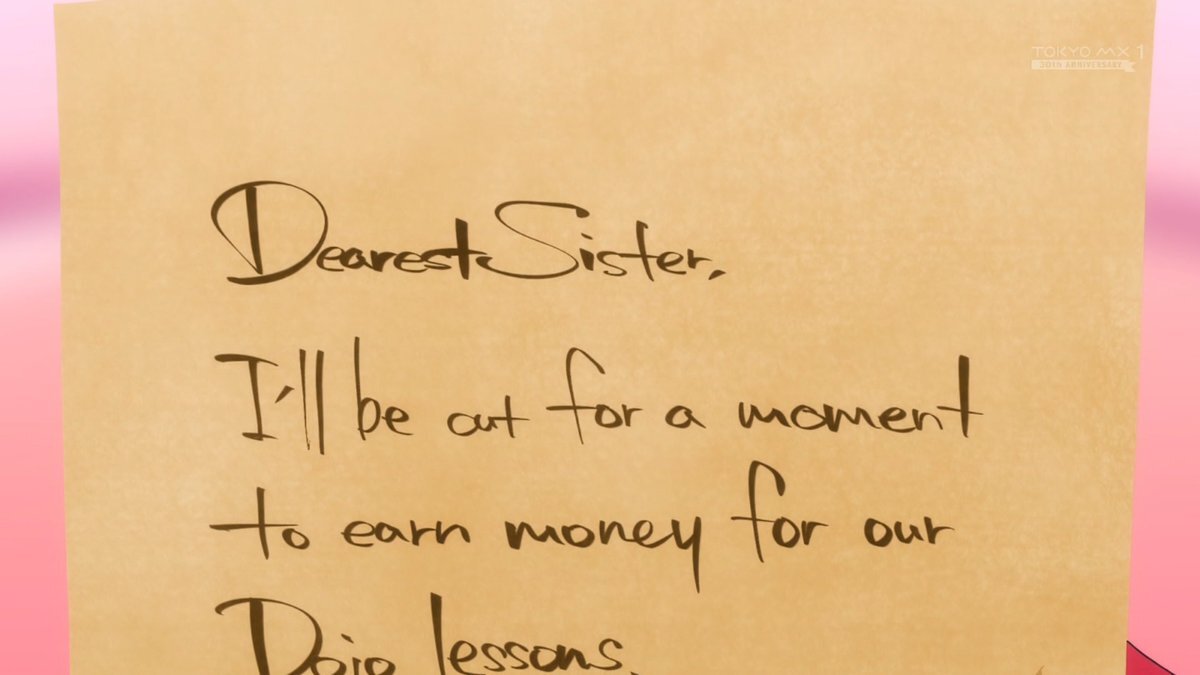 TOKYO MX 1
30TH ANNIVERSARY
Dearest Sister,
I'll be out for a moment
to earn money for our
Dojo lessons.